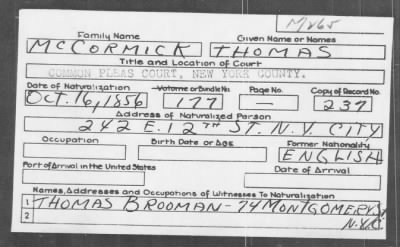 M265
Family Name Given Name or Names
McCORMICK THOMAS
Title and Location of Court
COMMON PLEAS COURT, NEW YORK COUNTY.
Date of Naturalization Volume or Bundle No. Page No. Copy of Record No.
OCT. 16, 1856 177 — 237
Address of Naturalized Person
242 E. 12TH ST. N.Y. CITY
Occupation Birth Date or Age Former Nationality
ENGLISH
Port of Arrival in the United States Date of Arrival
Names, Addresses and Occupations of Witnesses To Naturalization
1 THOMAS BROOMAN - 74 MONTGOMERY ST
N.Y.C.
2